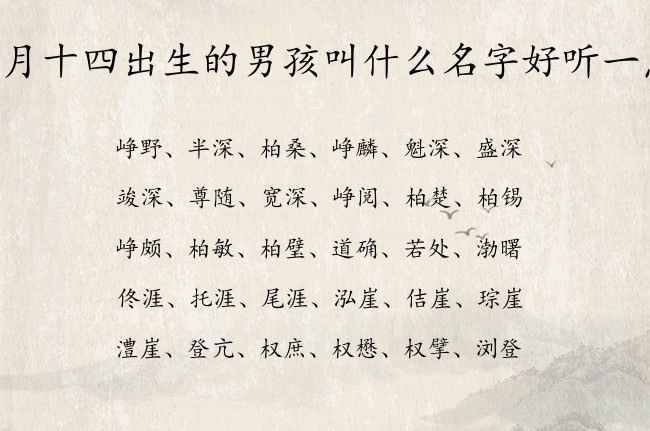 月十四出生的男孩叫什么名字好听一
峥野、半深、柏桑、峥麟、魁深、盛深
竣深、尊随、宽深、峥阅、柏楚、柏锡
峥颇、柏敏、柏璧、道确、若处、渤曙
佟涯、托涯、尾涯、泓崖、佶崖、琮崖
澧崖、登亢、权庶、权懋、权擘、浏登